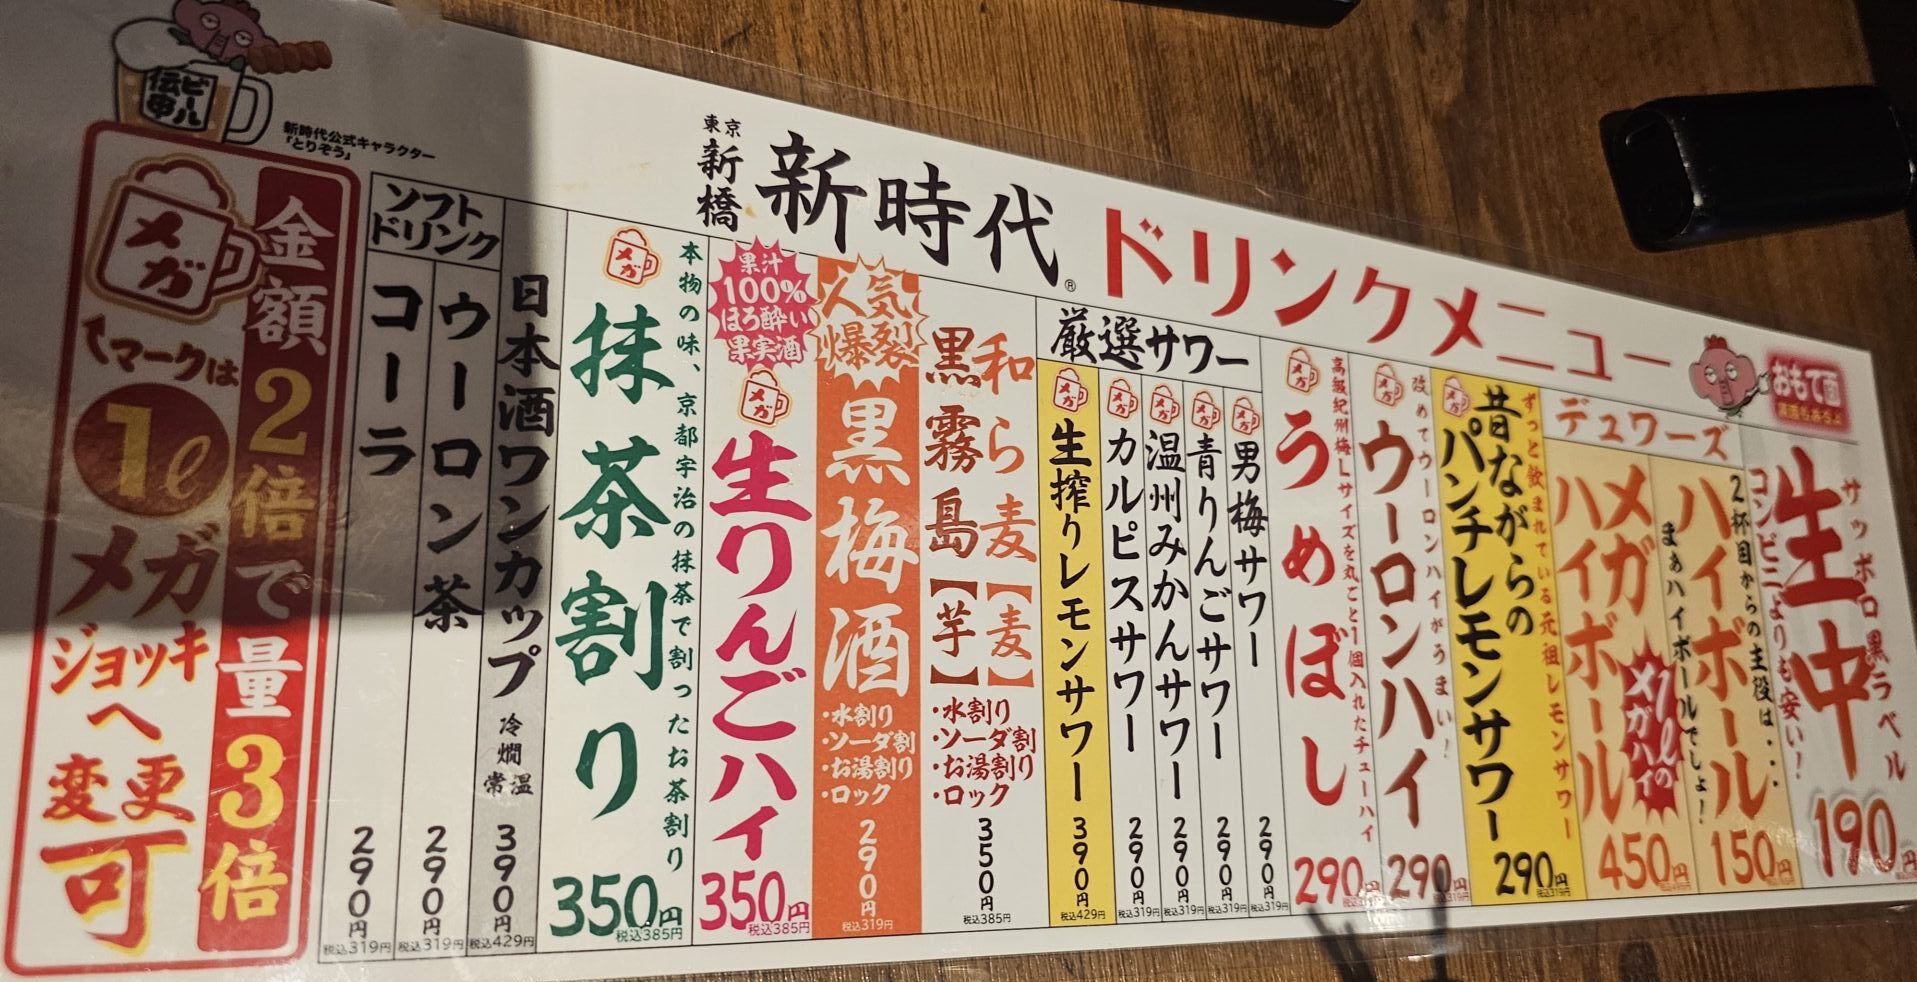 東京
新橋
新時代®
ドリンクメニュー
おもて面
サッポロ黒ラベル
生中
コンビニよりも安い!
190円
デュワーズ
2杯目からの主役は・・・
ハイボール
まぁハイボールでしょ!
150円
メガハイボール
1ℓのメガハイ
450円
ずっと飲まれている元祖レモンサワー
昔ながらの
パンチレモンサワー
メガ
290円
税込319円
改めてウーロンハイがうまい!
メガ
ウーロンハイ
290円
高級紀州梅Lサイズを丸ごと1個入れたチューハイ
メガ
うめぼし
290円
厳選サワー
メガ
男梅サワー
290円
税込319円
メガ
青りんごサワー
290円
税込319円
メガ
温州みかんサワー
290円
税込319円
メガ
カルピスサワー
290円
税込319円
メガ
生搾りレモンサワー
390円
税込429円
和ら麦【麦】
黒霧島【芋】
・水割り
・ソーダ割
・お湯割り
・ロック
350円
税込385円
人気
爆裂
黒梅酒
・水割り
・ソーダ割
・お湯割り
・ロック
290円
税込319円
果汁
100%
ほろ酔い
果実酒
メガ
生りんごハイ
350円
税込385円
本物の味、京都宇治の抹茶で割ったお茶割り
メガ
抹茶割り
350円
税込385円
日本酒ワンカップ
冷
燗
常温
390円
税込429円
ソフト
ドリンク
ウーロン茶
290円
税込319円
コーラ
290円
税込319円
金額2倍で量3倍
メガ
マークは
1ℓ
メガ
ジョッキ
へ
変更
可
ビール
伝串
新時代公式キャラクター
「とりぞう」